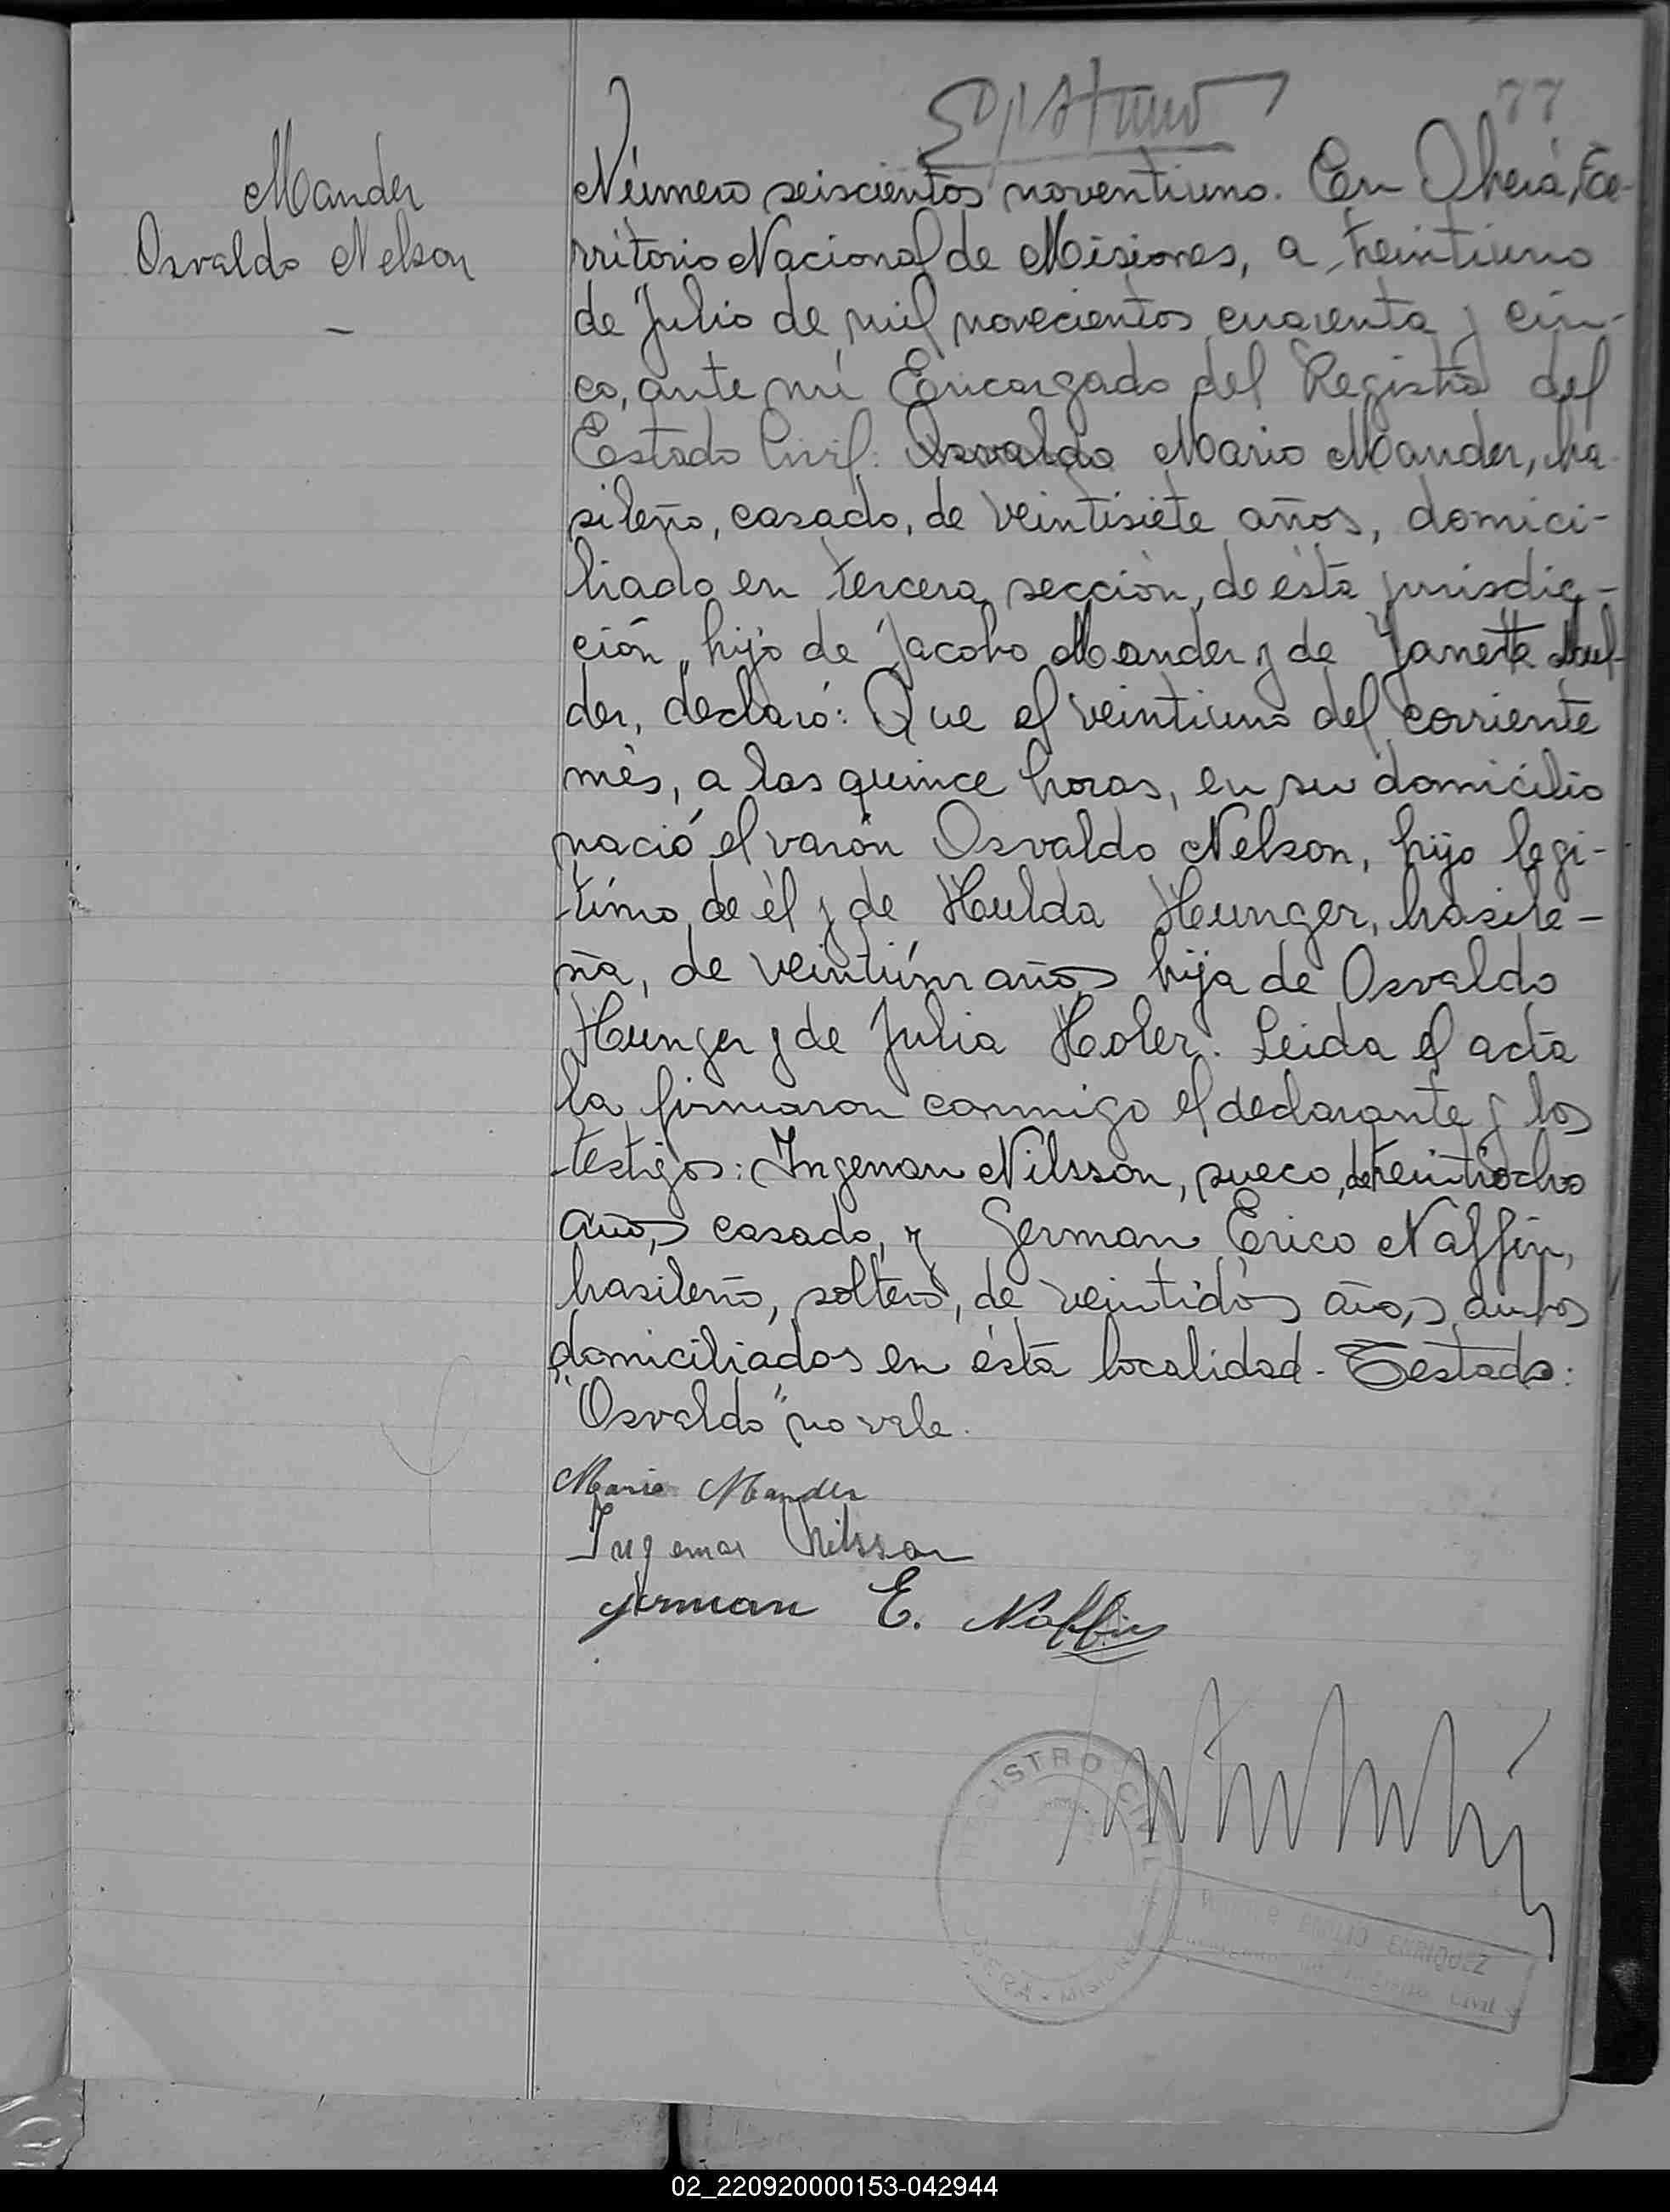 77
Mander
Osvaldo Nelson
Número seiscientos noventiuno. En Oberá, Te-
rritorio Nacional de Misiones, a treintiuno
de Julio de mil novecientos cuarenta y cin-
co, ante mí Encargado del Registro del
Estado Civil: Osvaldo Mario Mander, bra-
sileño, casado, de veintisiete años, domici-
liado en tercera sección, de ésta jurisdic-
ción, hijo de Jacobo Mander y de Janette Mul-
der, declaró: Que el veintiuno del corriente
més, a las quince horas, en su domicilio
nació el varón Osvaldo Nelson, hijo legi-
timo de él y de Hulda Hunger, brasile-
ña, de veintiún años hija de Osvaldo
Hunger y de Julia Holer. Leida el acta
la firmaron conmigo el declarante y los
testigos: Ingemar Nilsson, sueco, de treintiocho
años, casado, y German Erico Naffin,
brasileño, soltero, de veintidós años, ambos
domiciliados en ésta localidad - Testado:
"Osvaldo" no vale.
Mario Mander
Ingemar Nilsson
German E. Naffin
REGISTRO CIVIL
OBERÁ - MISIONES
EMILIO ENRIQUEZ
Civil
02_220920000153-042944